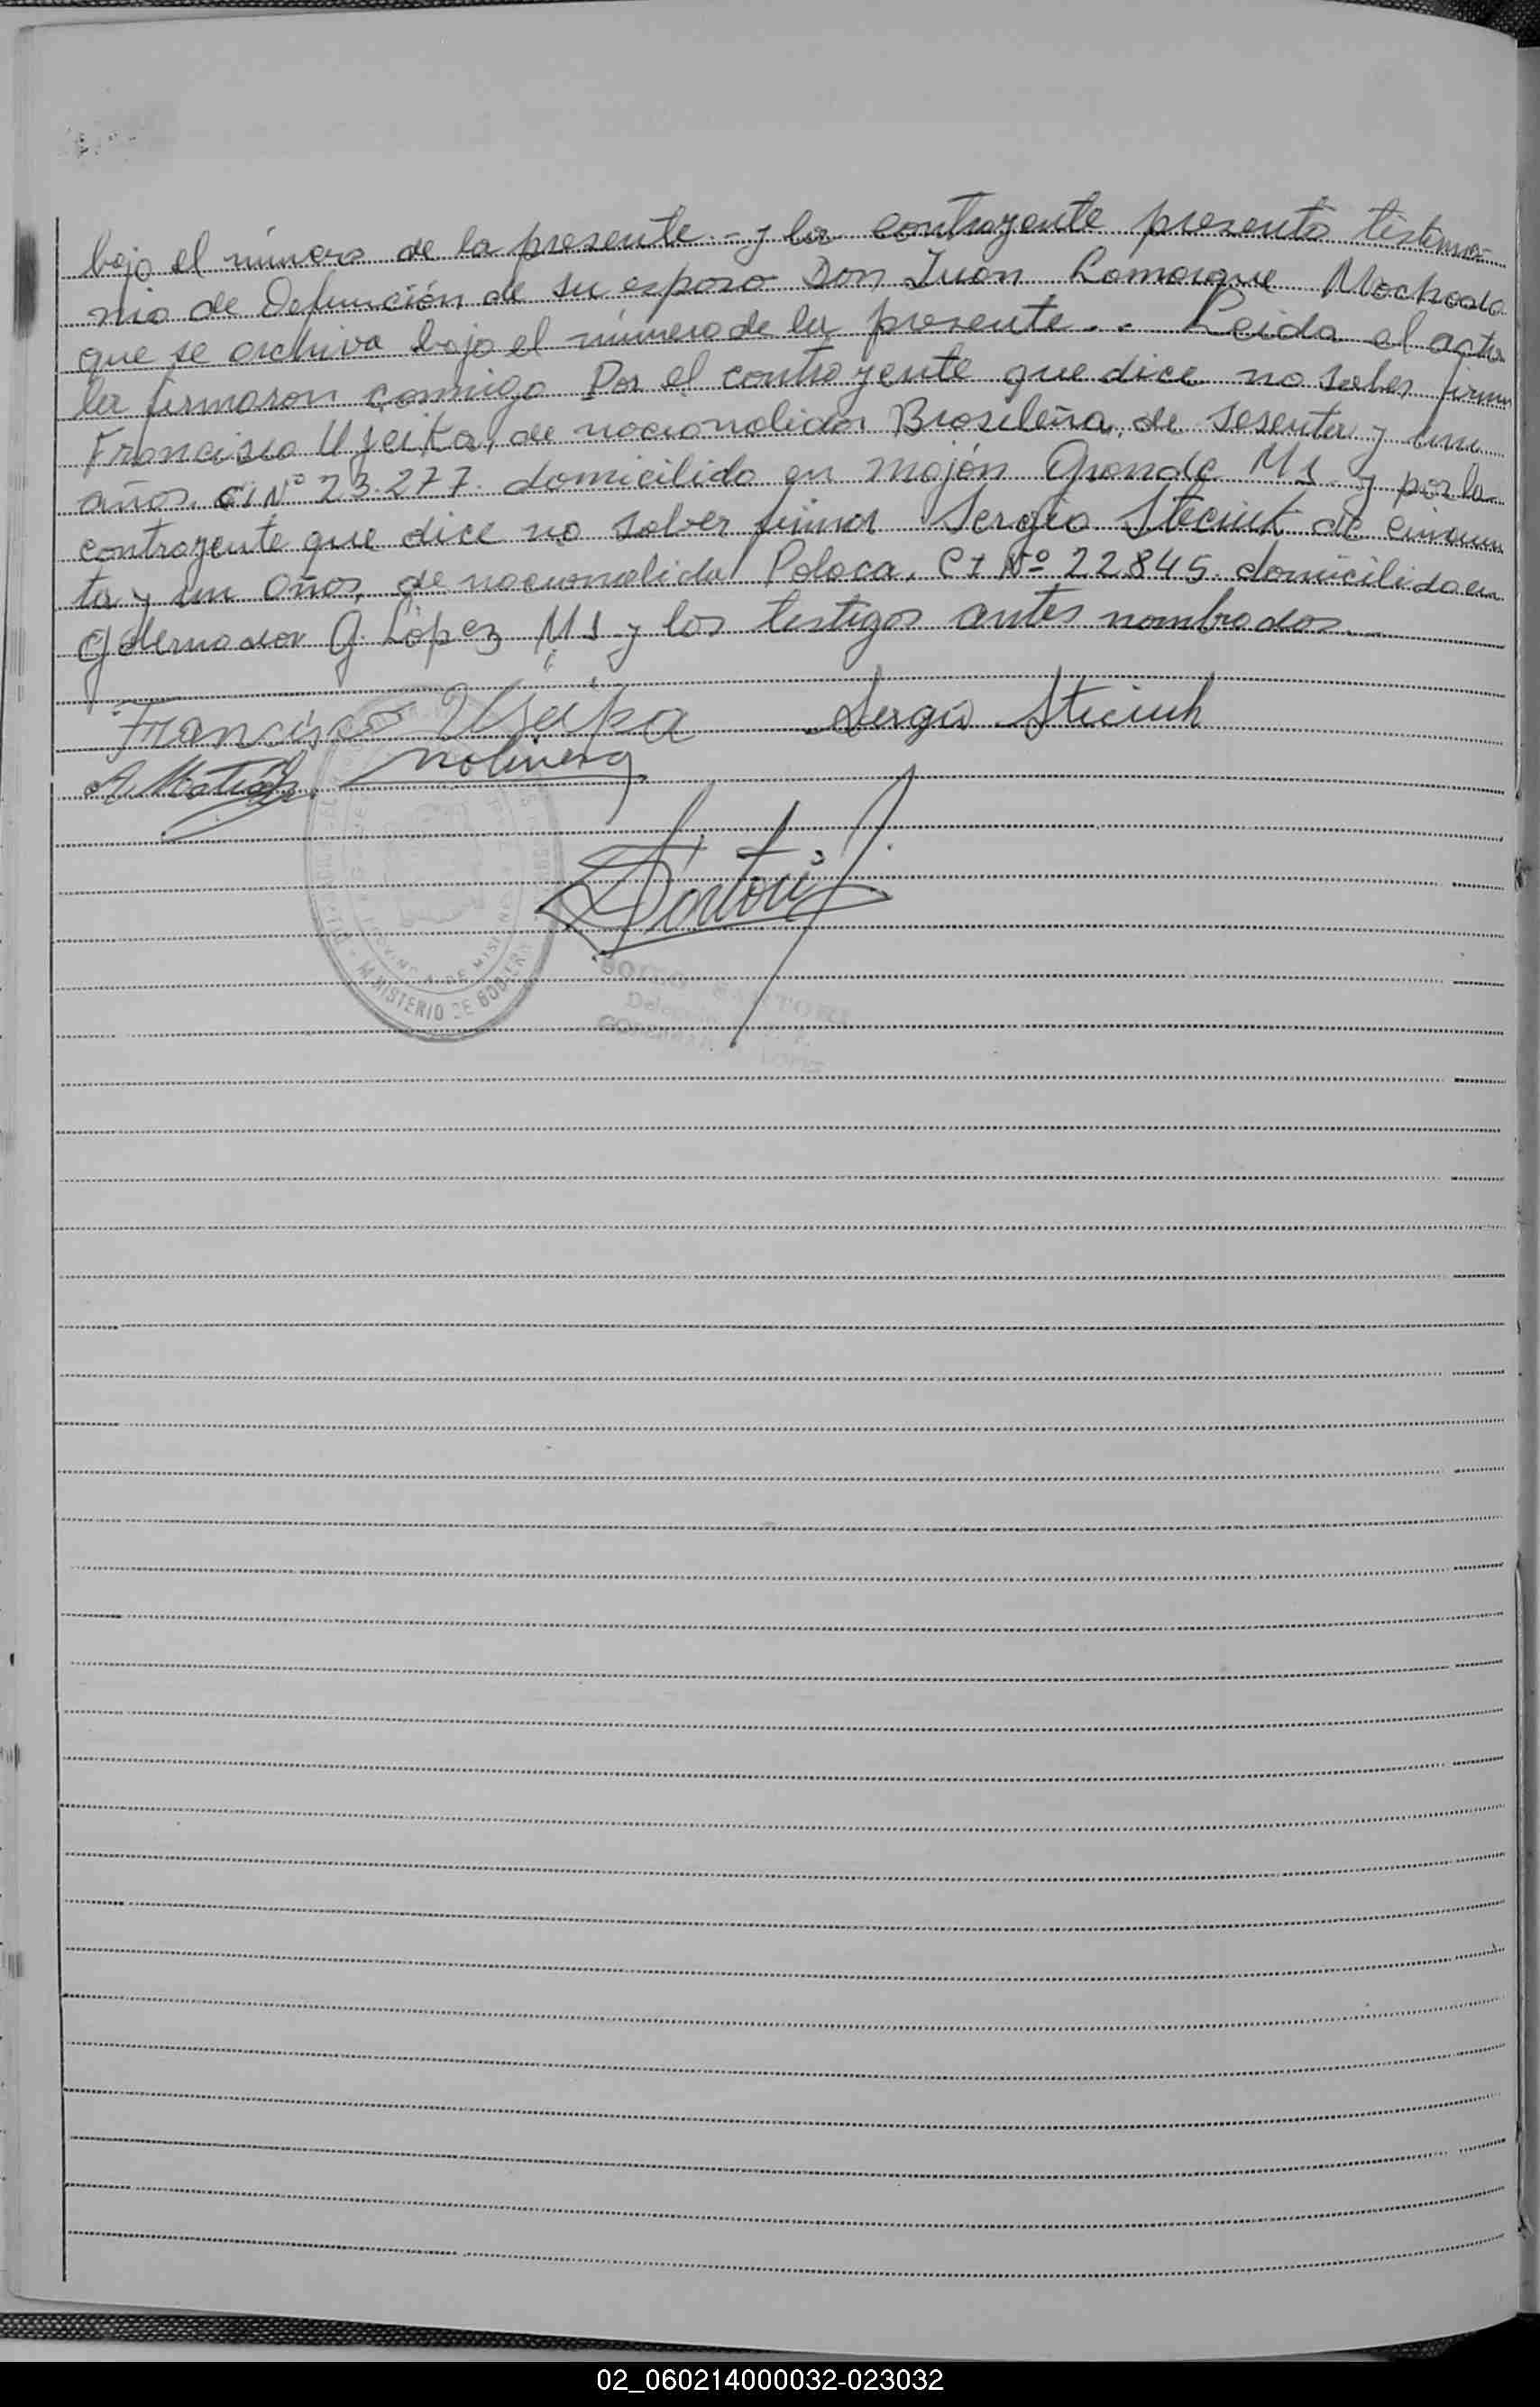 bajo el número de la presente.- y la contrayente presenta testimo=
nio de Defunción de su esposo Don Juan Lamarque Machado
que se archiva bajo el número de la presente.. Leida el acta
la firmaron conmigo Por el contrayente que dice no saber firmar
Francisco Useika, de nacionalidad Brasileña, de sesenta y un
años. CI Nº 23.277. domicilido en Mojón Grande Ms y por la
contrayente que dice no saber firmar Sergio Steciuk de cincuen
ta y un años, de nacionalidad Polaca. CI Nº 22845. domicilido en
Gobernador G. López Ms y los testigos antes nombrados.
Francisco Sergio Steciuk
Molinera
Sartori
MINISTERIO DE GOBIERNO
PROVINCIA DE MISIONES
SARTORI
02_060214000032-023032